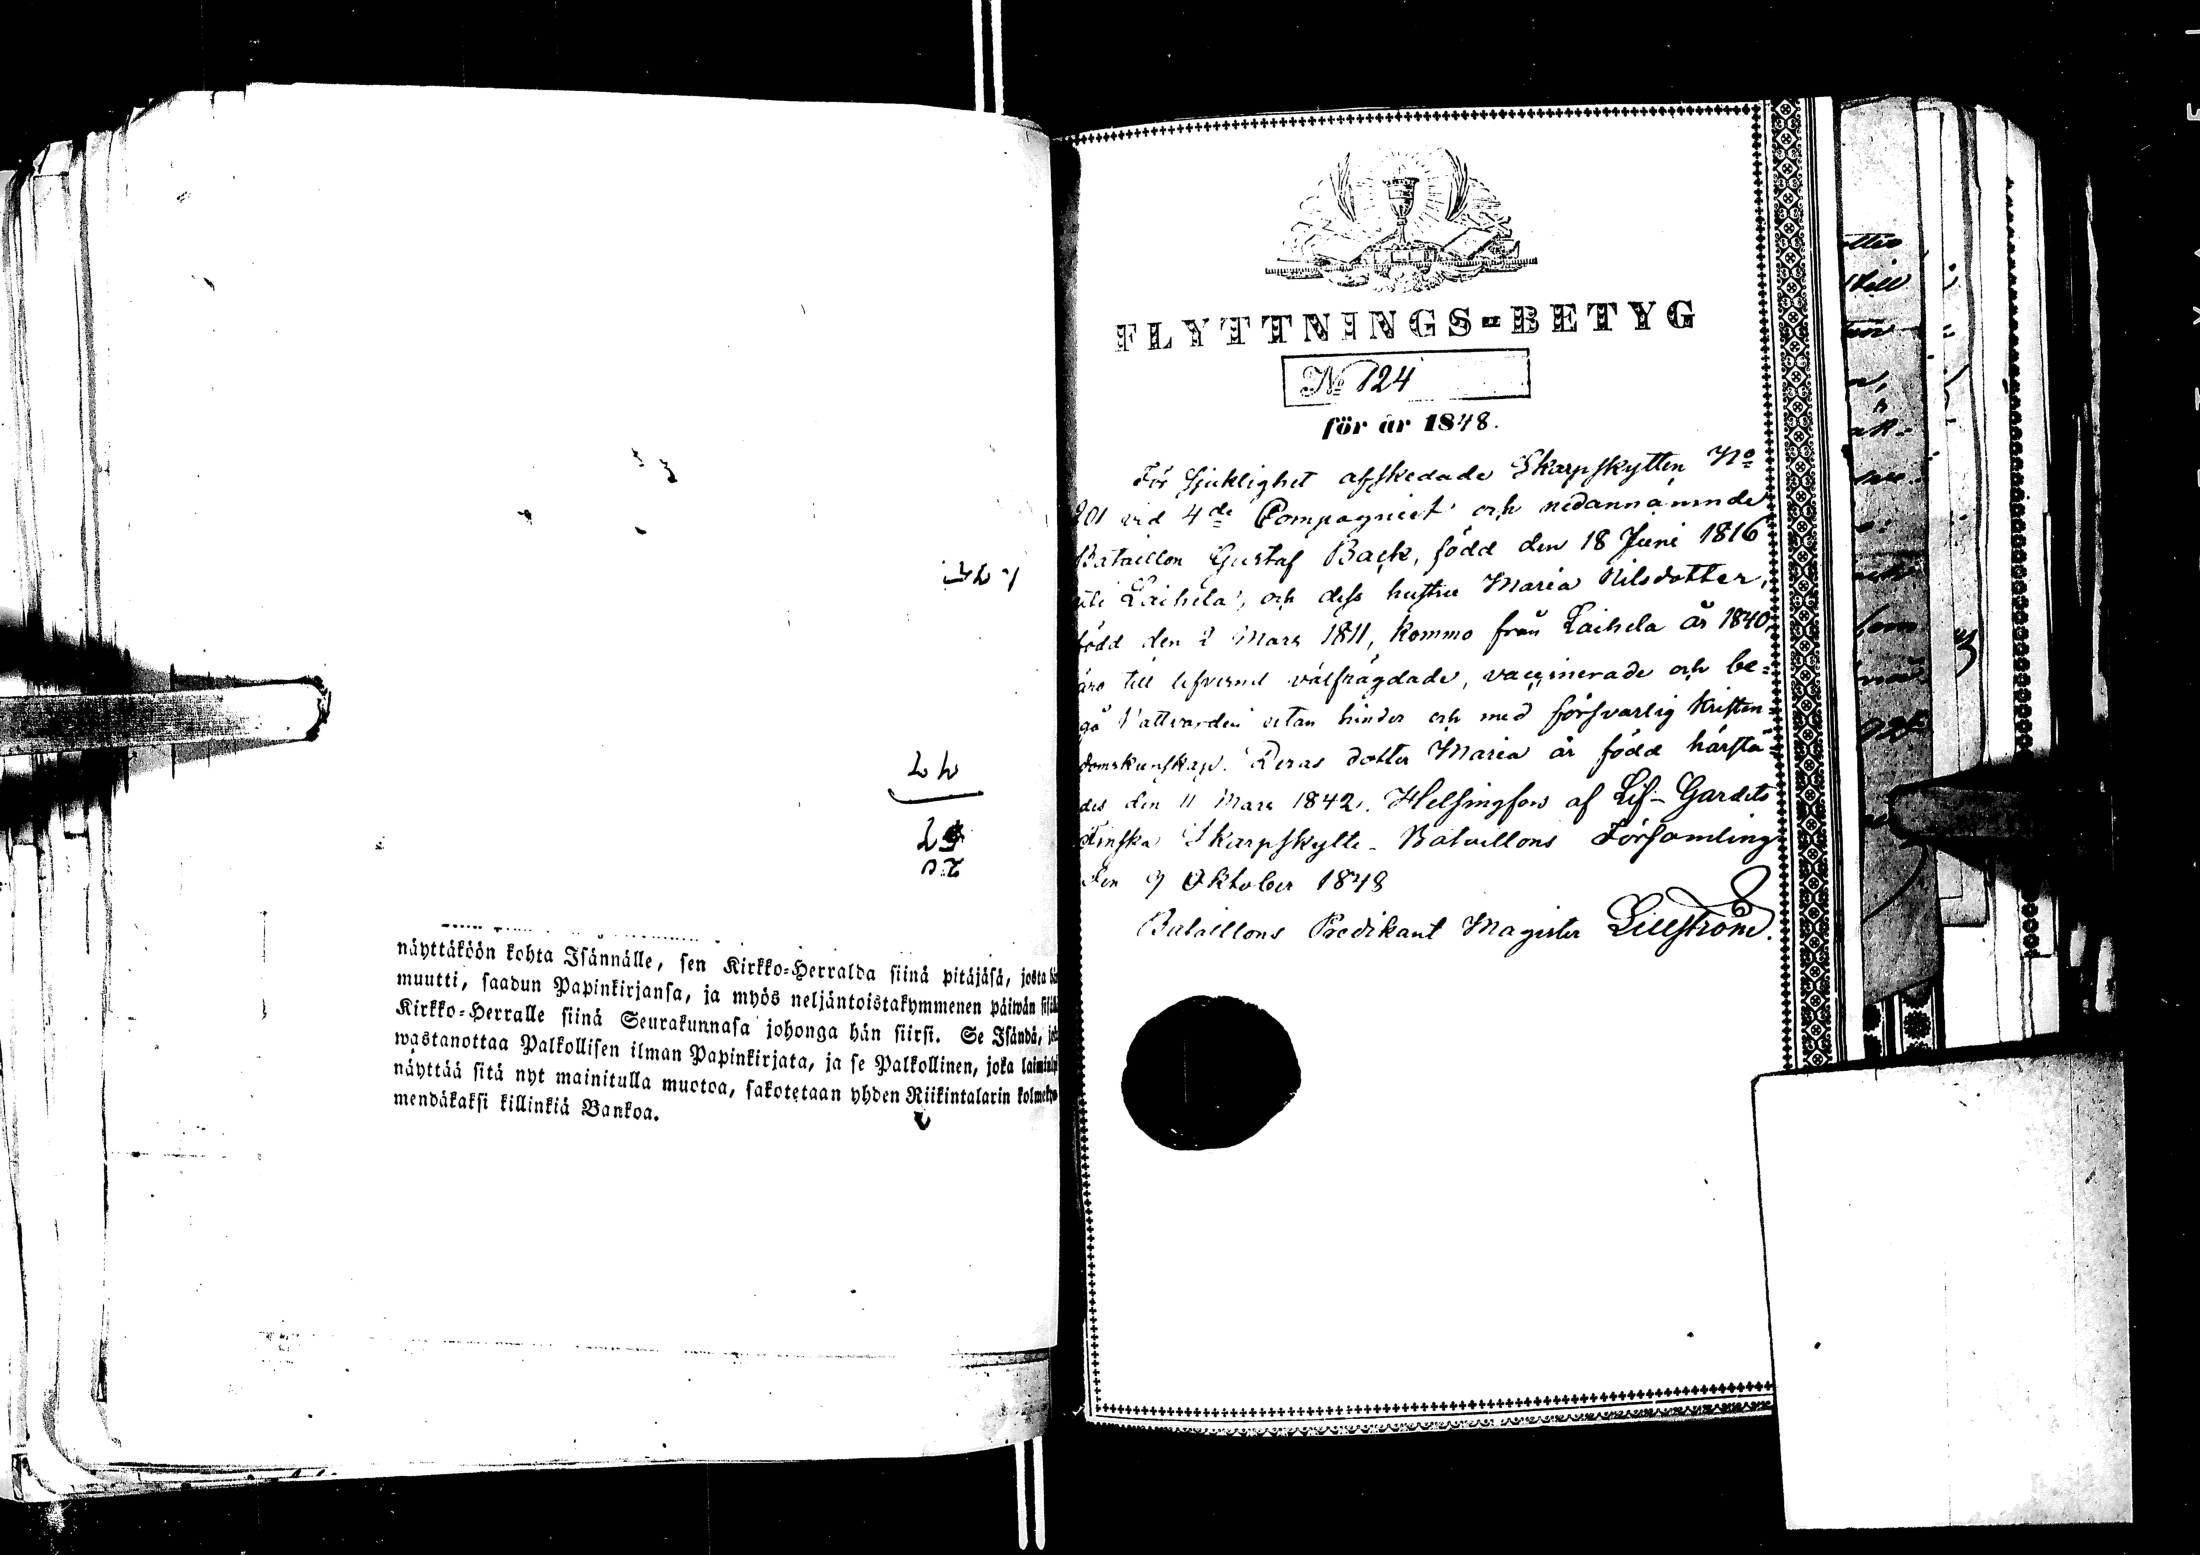 näyttäköön kohta Isännälle, sen Kirkko=Herralda siinä pitäjäsä, josta
muutti, saadun Papinkirjansa, ja myös neljäntoistakymmenen päiwän
Kirkko=Herralle siinä Seurakunnasa johonga hän siirsi. Se Isändä,
wastanottaa Palkollisen ilman Papinkirjata, ja se Palkollinen, joka
näyttää sitä nyt mainitulla muotoa, sakotetaan yhden Riikintalarin
mendäkaksi killinkiä Bankoa.
FLYTTNINGS=BETYG
No 124
för år 1848.
För Sjuklighet afskedade Skarpskytten No
201 vid 4de Compagniet och nedannämnde
Bataillon Gustaf Back, född den 18 Juni 1816
uti Laihela, och dess hustru Maria Nilsdotter,
född den 2 Mars 1811, komne från Laihela år 1840,
äro till lefverne välfrägdade, vaccinerade och be=
gå Nattvarden utan hinder och med försvarlig Kristen=
domskunskap. Deras dotter Maria är född härstä=
des den 11 Mars 1842. Helsingfors af Lif-Gardets
Finska Skarpskytte-Bataillons Församling
den 9 Oktober 1848
Bataillons Predikant Magister Lillström.